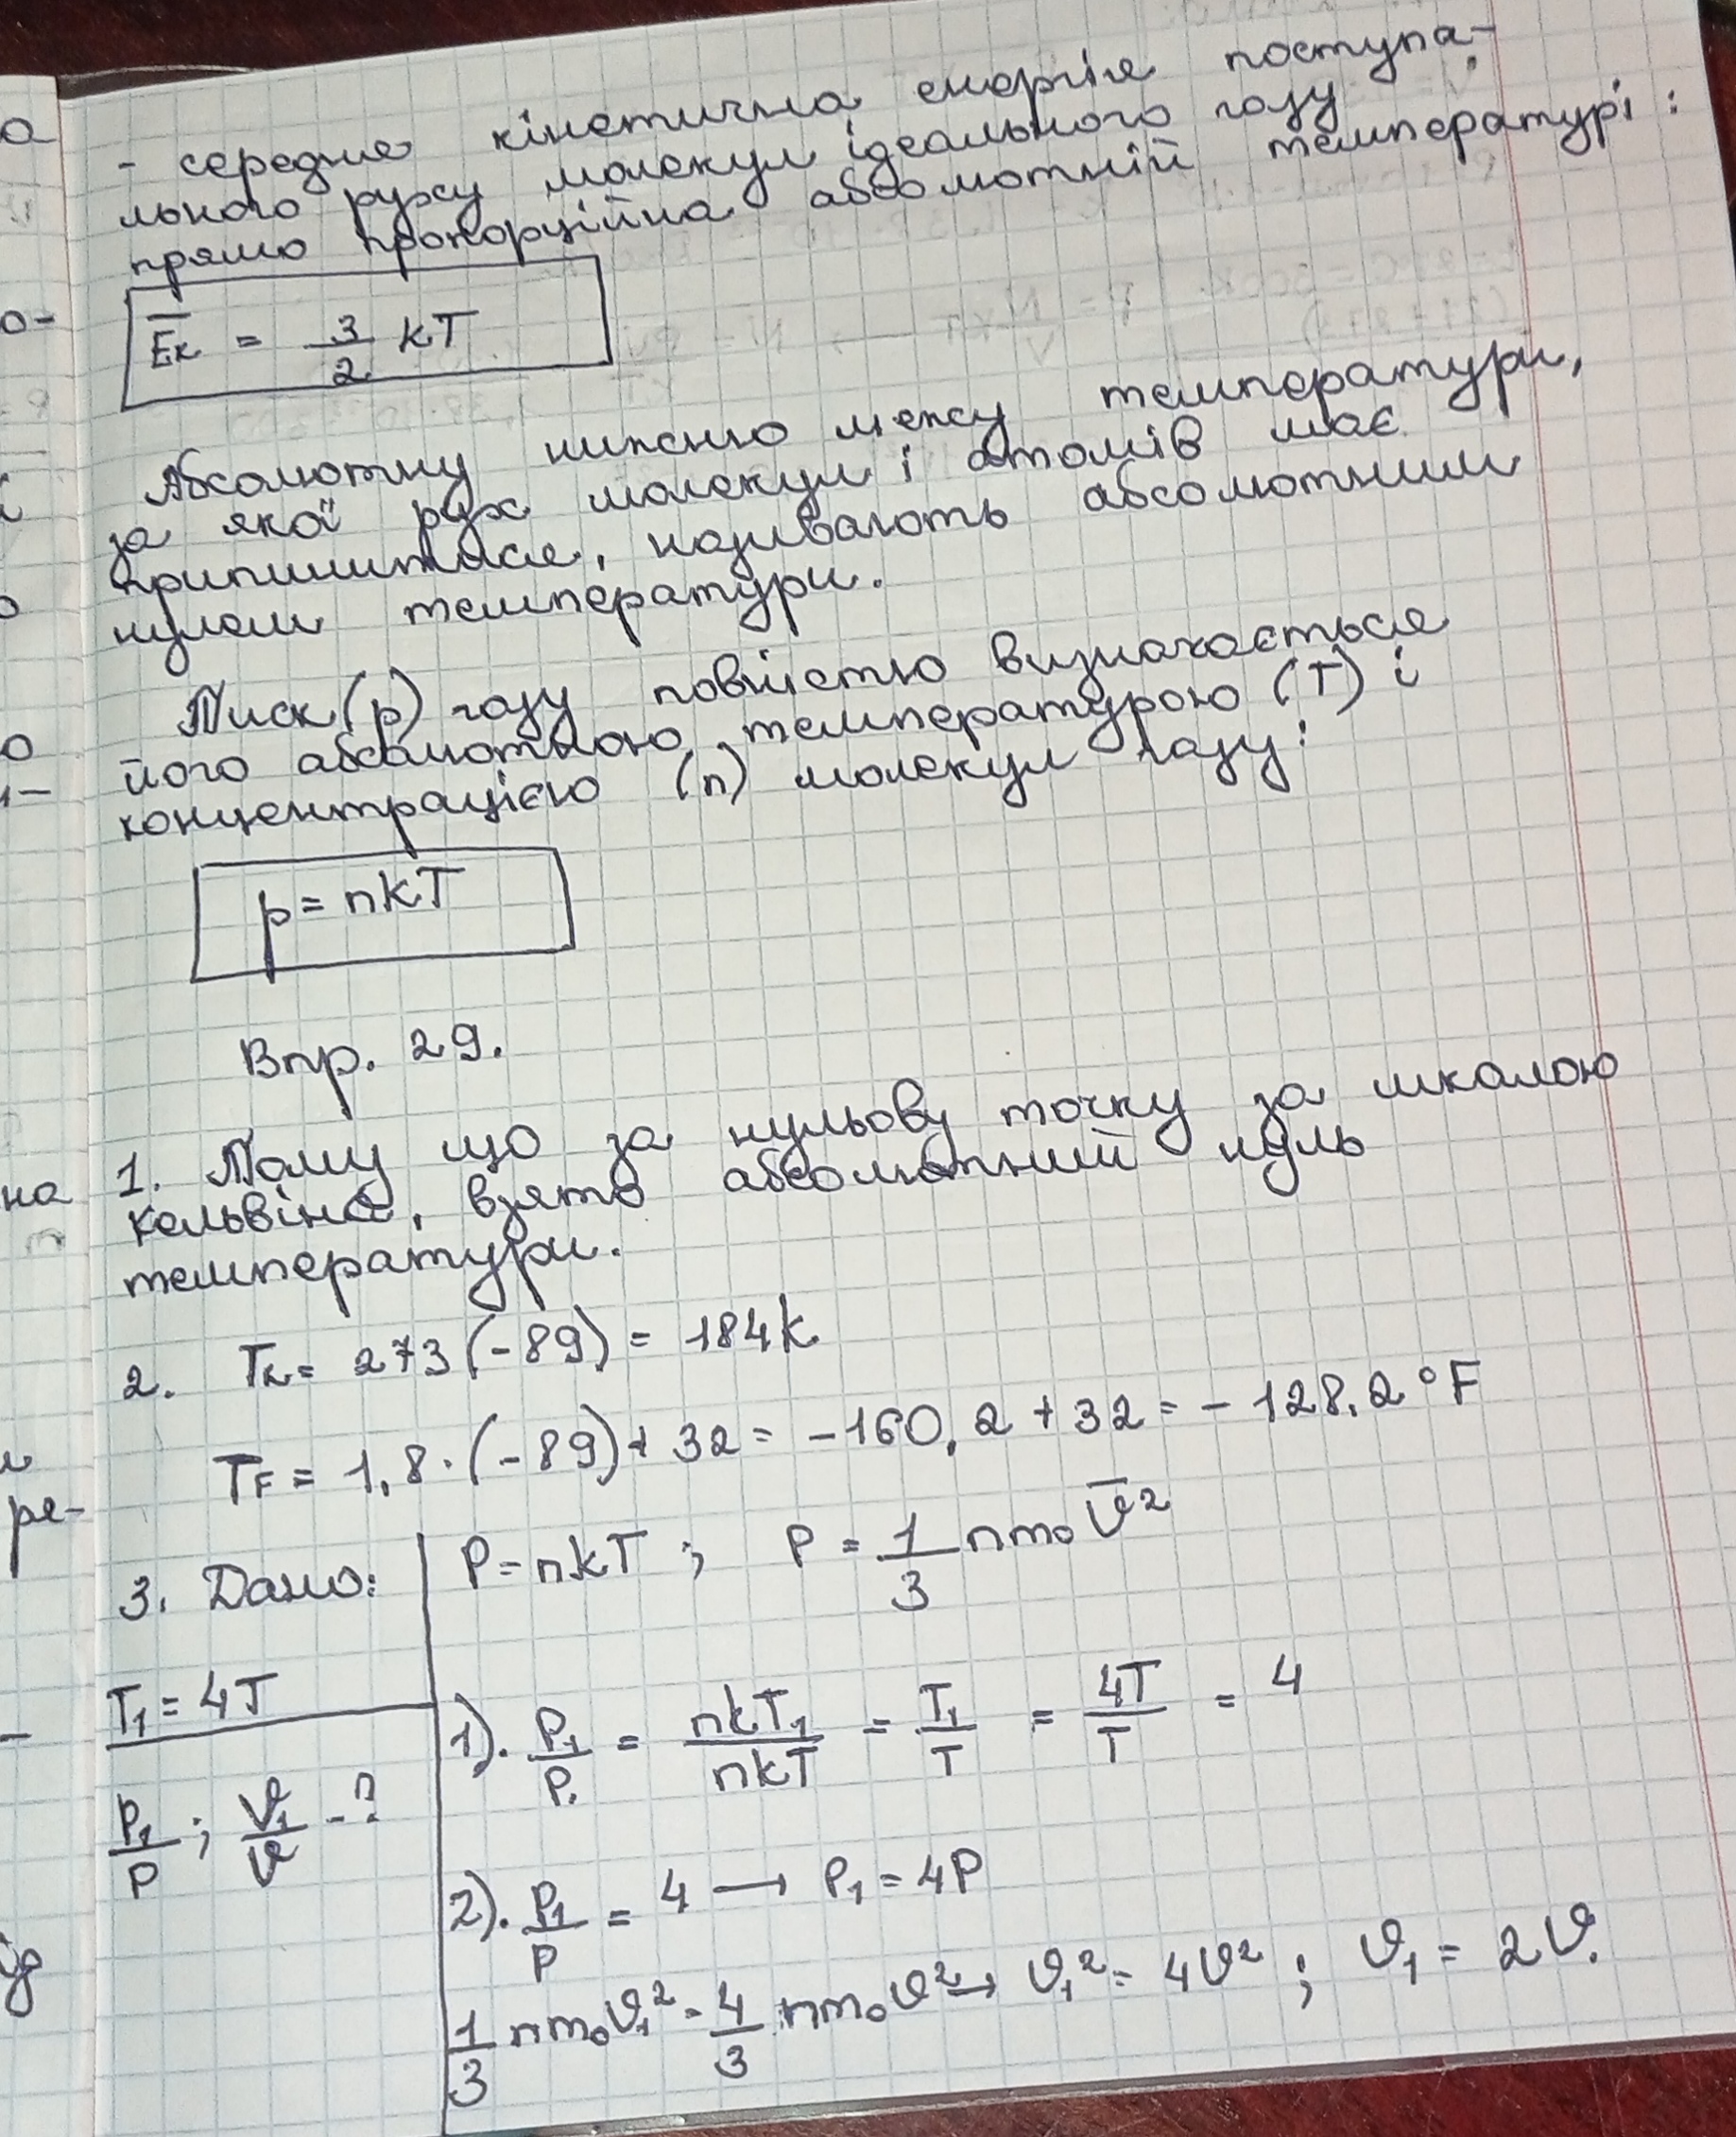 - середня кінетична енергія поступа-
льного руху молекул ідеального газу
прямо пропорційна абсолютній температурі:
Ек = 3/2 kT
Абсолютну нижню межу температури,
за якої рух молекул і атомів має
припинитися, називають абсолютним
нулем температури.
Тиск (p) газу повністю визначається
його абсолютною температурою (T) і
концентрацією (n) молекул газу:
p = nkT
Впр. 29.
1. Тому що за нульову точку за шкалою
Кельвіна, взято абсолютний нуль
температури.
2. Tк = 273 (-89) = 184k
TF = 1,8 · (-89) + 32 = -160,2 + 32 = -128,2 °F
3. Дано:
T₁ = 4T
P₁/P ; v₁/v - ?
P = nkT ; P = 1/3 nm₀ v̅²
1). P₁/P = nkT₁/nkT = T₁/T = 4T/T = 4
2). P₁/P = 4 → P₁ = 4P
1/3 nm₀v₁² = 4/3 nm₀v² → v₁² = 4v² ; v₁ = 2v.